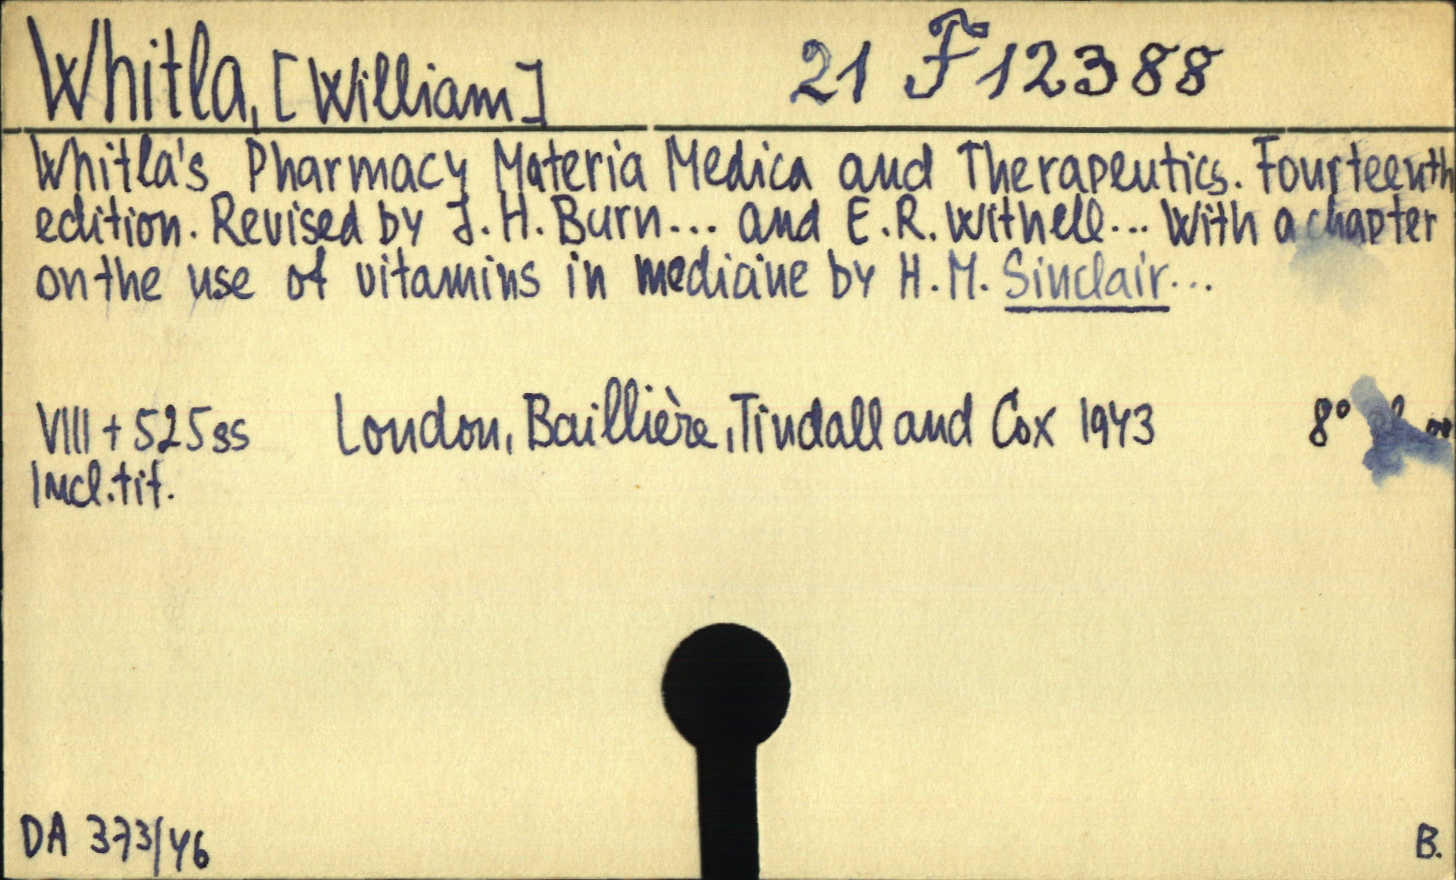 Whitla, [William] 21 F 12388
Whitla's Pharmacy Materia Medica and Therapeutics. Fourteenth
edition. Revised by J. H. Burn... and E. R. Withell... With a chapter
on the use of vitamins in medicine by H. M. Sinclair...
VIII + 525 ss London, Baillière, Tindall and Cox 1943 8°
Incl. tit.
DA 373/46 B.